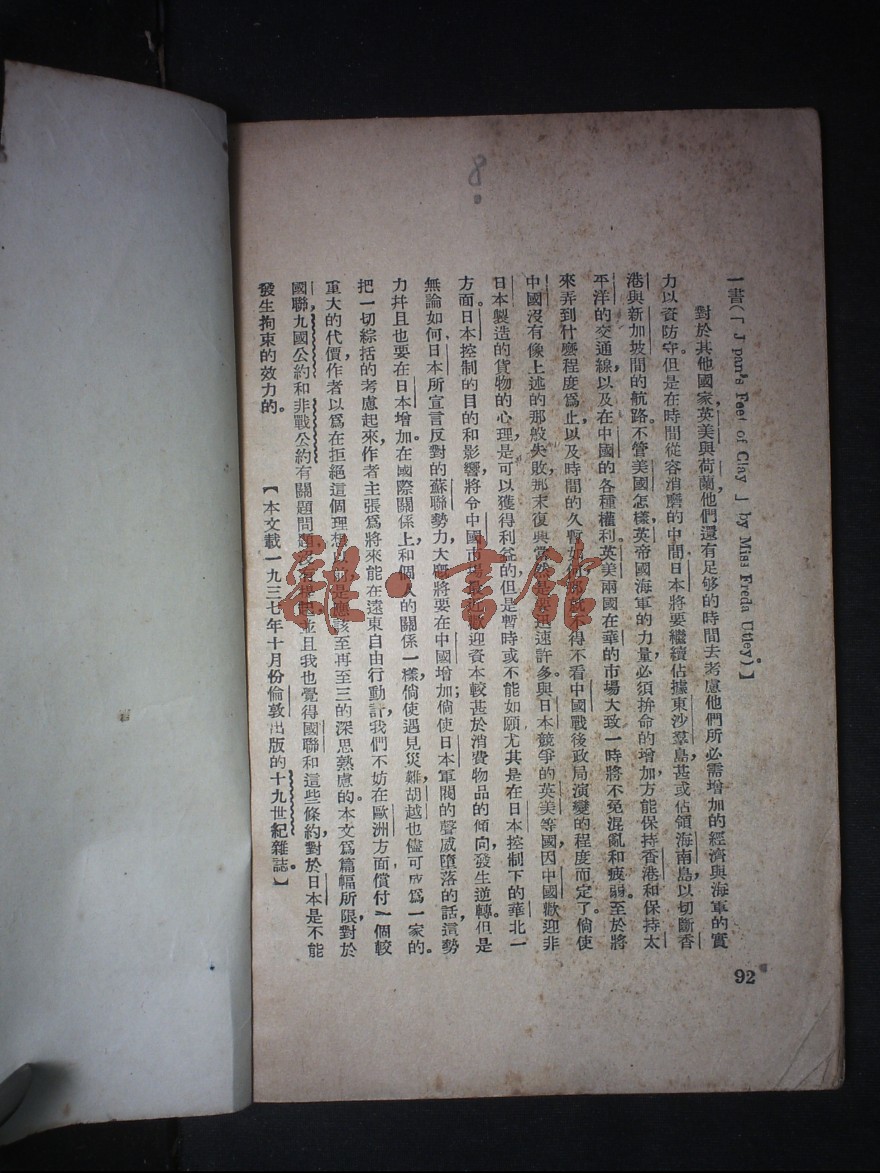 一書(「J pan's Feet of Clay」by Miss Freda Utley)。】
對於其他國家英美與荷蘭他們還有足够的時間去考慮他們所必需增加的經濟與海軍的實
力以資防守。但是在時間從容消磨的中間,日本將要繼續佔據東沙羣島,甚或佔領海南島,以切斷香
港與新加坡間的航路。不管美國怎樣,英帝國海軍的力量,必須拚命的增加,方能保持香港和保持太
平洋的交通線,以及在中國的各種權利。英美兩國在華的市場,大致一時將不免混亂和疲弱。至於將
來弄到什麼程度爲止,以及時間的久暫如何,那就不得不看中國戰後政局演變的程度而定了。倘使
中國沒有像上述的那般失敗,那末復興當然是要迅速許多。與日本競爭的英美等國,因中國歡迎非
日本製造的貨物的心理,是可以獲得利益的,但是暫時或不能如願,尤其是在日本控制下的華北一
方面。日本控制的目的和影響,將令中國市場最近歡迎資本較甚於消費物品的傾向,發生逆轉。但是
無論如何,日本所宣言反對的蘇聯勢力,大概將要在中國增加;倘使日本軍閥的聲威墮落的話,這勢
力幷且也要在日本增加。在國際關係上,和個人的關係一樣,倘使遇見災難,胡越也儘可成爲一家的。
把一切綜括的考慮起來,作者主張爲將來能在遠東自由行動計,我們不妨在歐洲方面償付一個較
重大的代價,作者以爲在拒絕這個理想以前,是應該至再至三的深思熟慮的。本文爲篇幅所限,對於
國聯,九國公約和非戰公約有關題問題,並且我也覺得國聯和這些條約,對於日本是不能
發生拘束的效力的。
【本文載一九三七年十月份倫敦出版的十九世紀雜誌。】
92
8
雜·書館